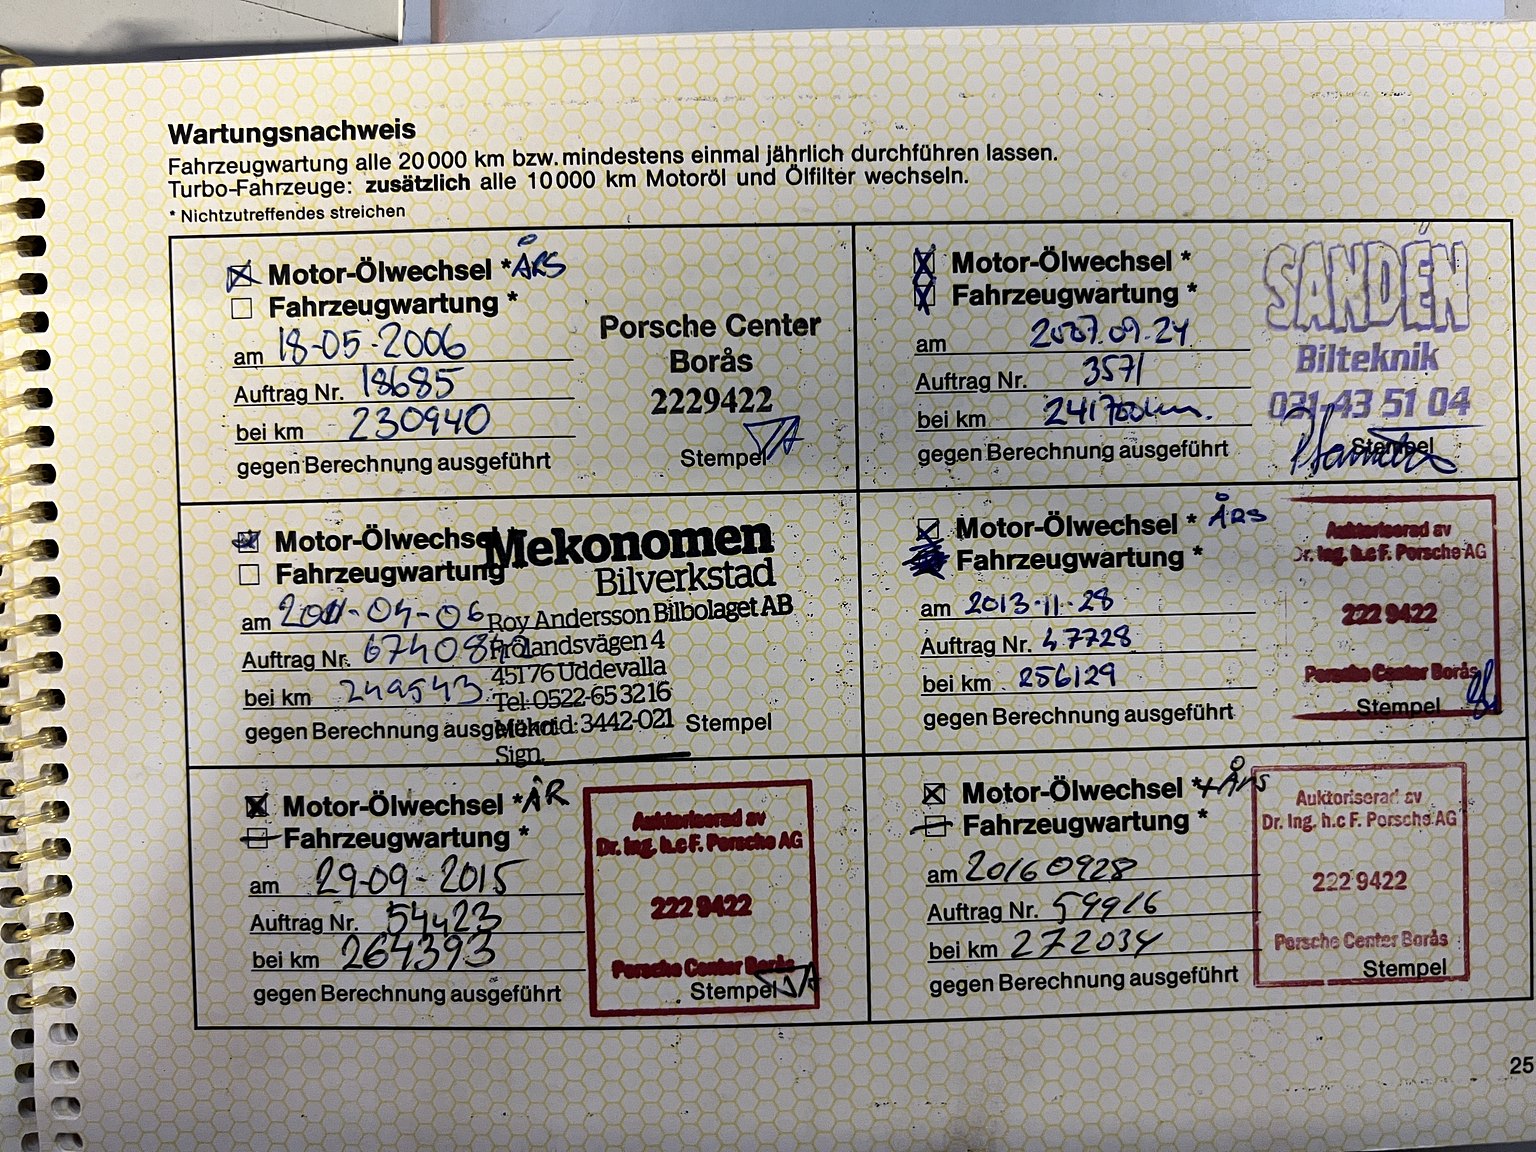 Wartungsnachweis
Fahrzeugwartung alle 20 000 km bzw. mindestens einmal jährlich durchführen lassen.
Turbo-Fahrzeuge: zusätzlich alle 10 000 km Motoröl und Ölfilter wechseln.
* Nichtzutreffendes streichen
Motor-Ölwechsel * ÅRS
Fahrzeugwartung *
am 18-05-2006
Auftrag Nr. 18685
bei km 230940
gegen Berechnung ausgeführt
Porsche Center
Borås
2229422
Stempel
Motor-Ölwechsel *
Fahrzeugwartung *
am 2007.09.24
Auftrag Nr. 3571
bei km 241700km.
gegen Berechnung ausgeführt
SANDÉN
Bilteknik
031-43 51 04
Stempel
Motor-Ölwechsel
Fahrzeugwartung
am 2011-04-06
Auftrag Nr.
bei km 249543
gegen Berechnung ausgeführt
Mekonomen
Bilverkstad
Roy Andersson Bilbolaget AB
Frölandsvägen 4
45176 Uddevalla
Tel: 0522-65 3216
Mekoid: 3442-021
Sign.
Stempel
Motor-Ölwechsel * ÅRS
Fahrzeugwartung *
am 2013-11-28
Auftrag Nr. 47728
bei km 256129
gegen Berechnung ausgeführt
Auktoriserad av
Dr. Ing. h.c F. Porsche AG
222 9422
Porsche Center Borås
Stempel
Motor-Ölwechsel * ÅR
Fahrzeugwartung *
am 29-09-2015
Auftrag Nr. 54423
bei km 264393
gegen Berechnung ausgeführt
Auktoriserad av
Dr. Ing. h.c F. Porsche AG
222 9422
Porsche Center Borås
Stempel
Motor-Ölwechsel * + Års
Fahrzeugwartung *
am 20160928
Auftrag Nr. 59916
bei km 272034
gegen Berechnung ausgeführt
Auktoriserad av
Dr. Ing. h.c F. Porsche AG
222 9422
Porsche Center Borås
Stempel
25